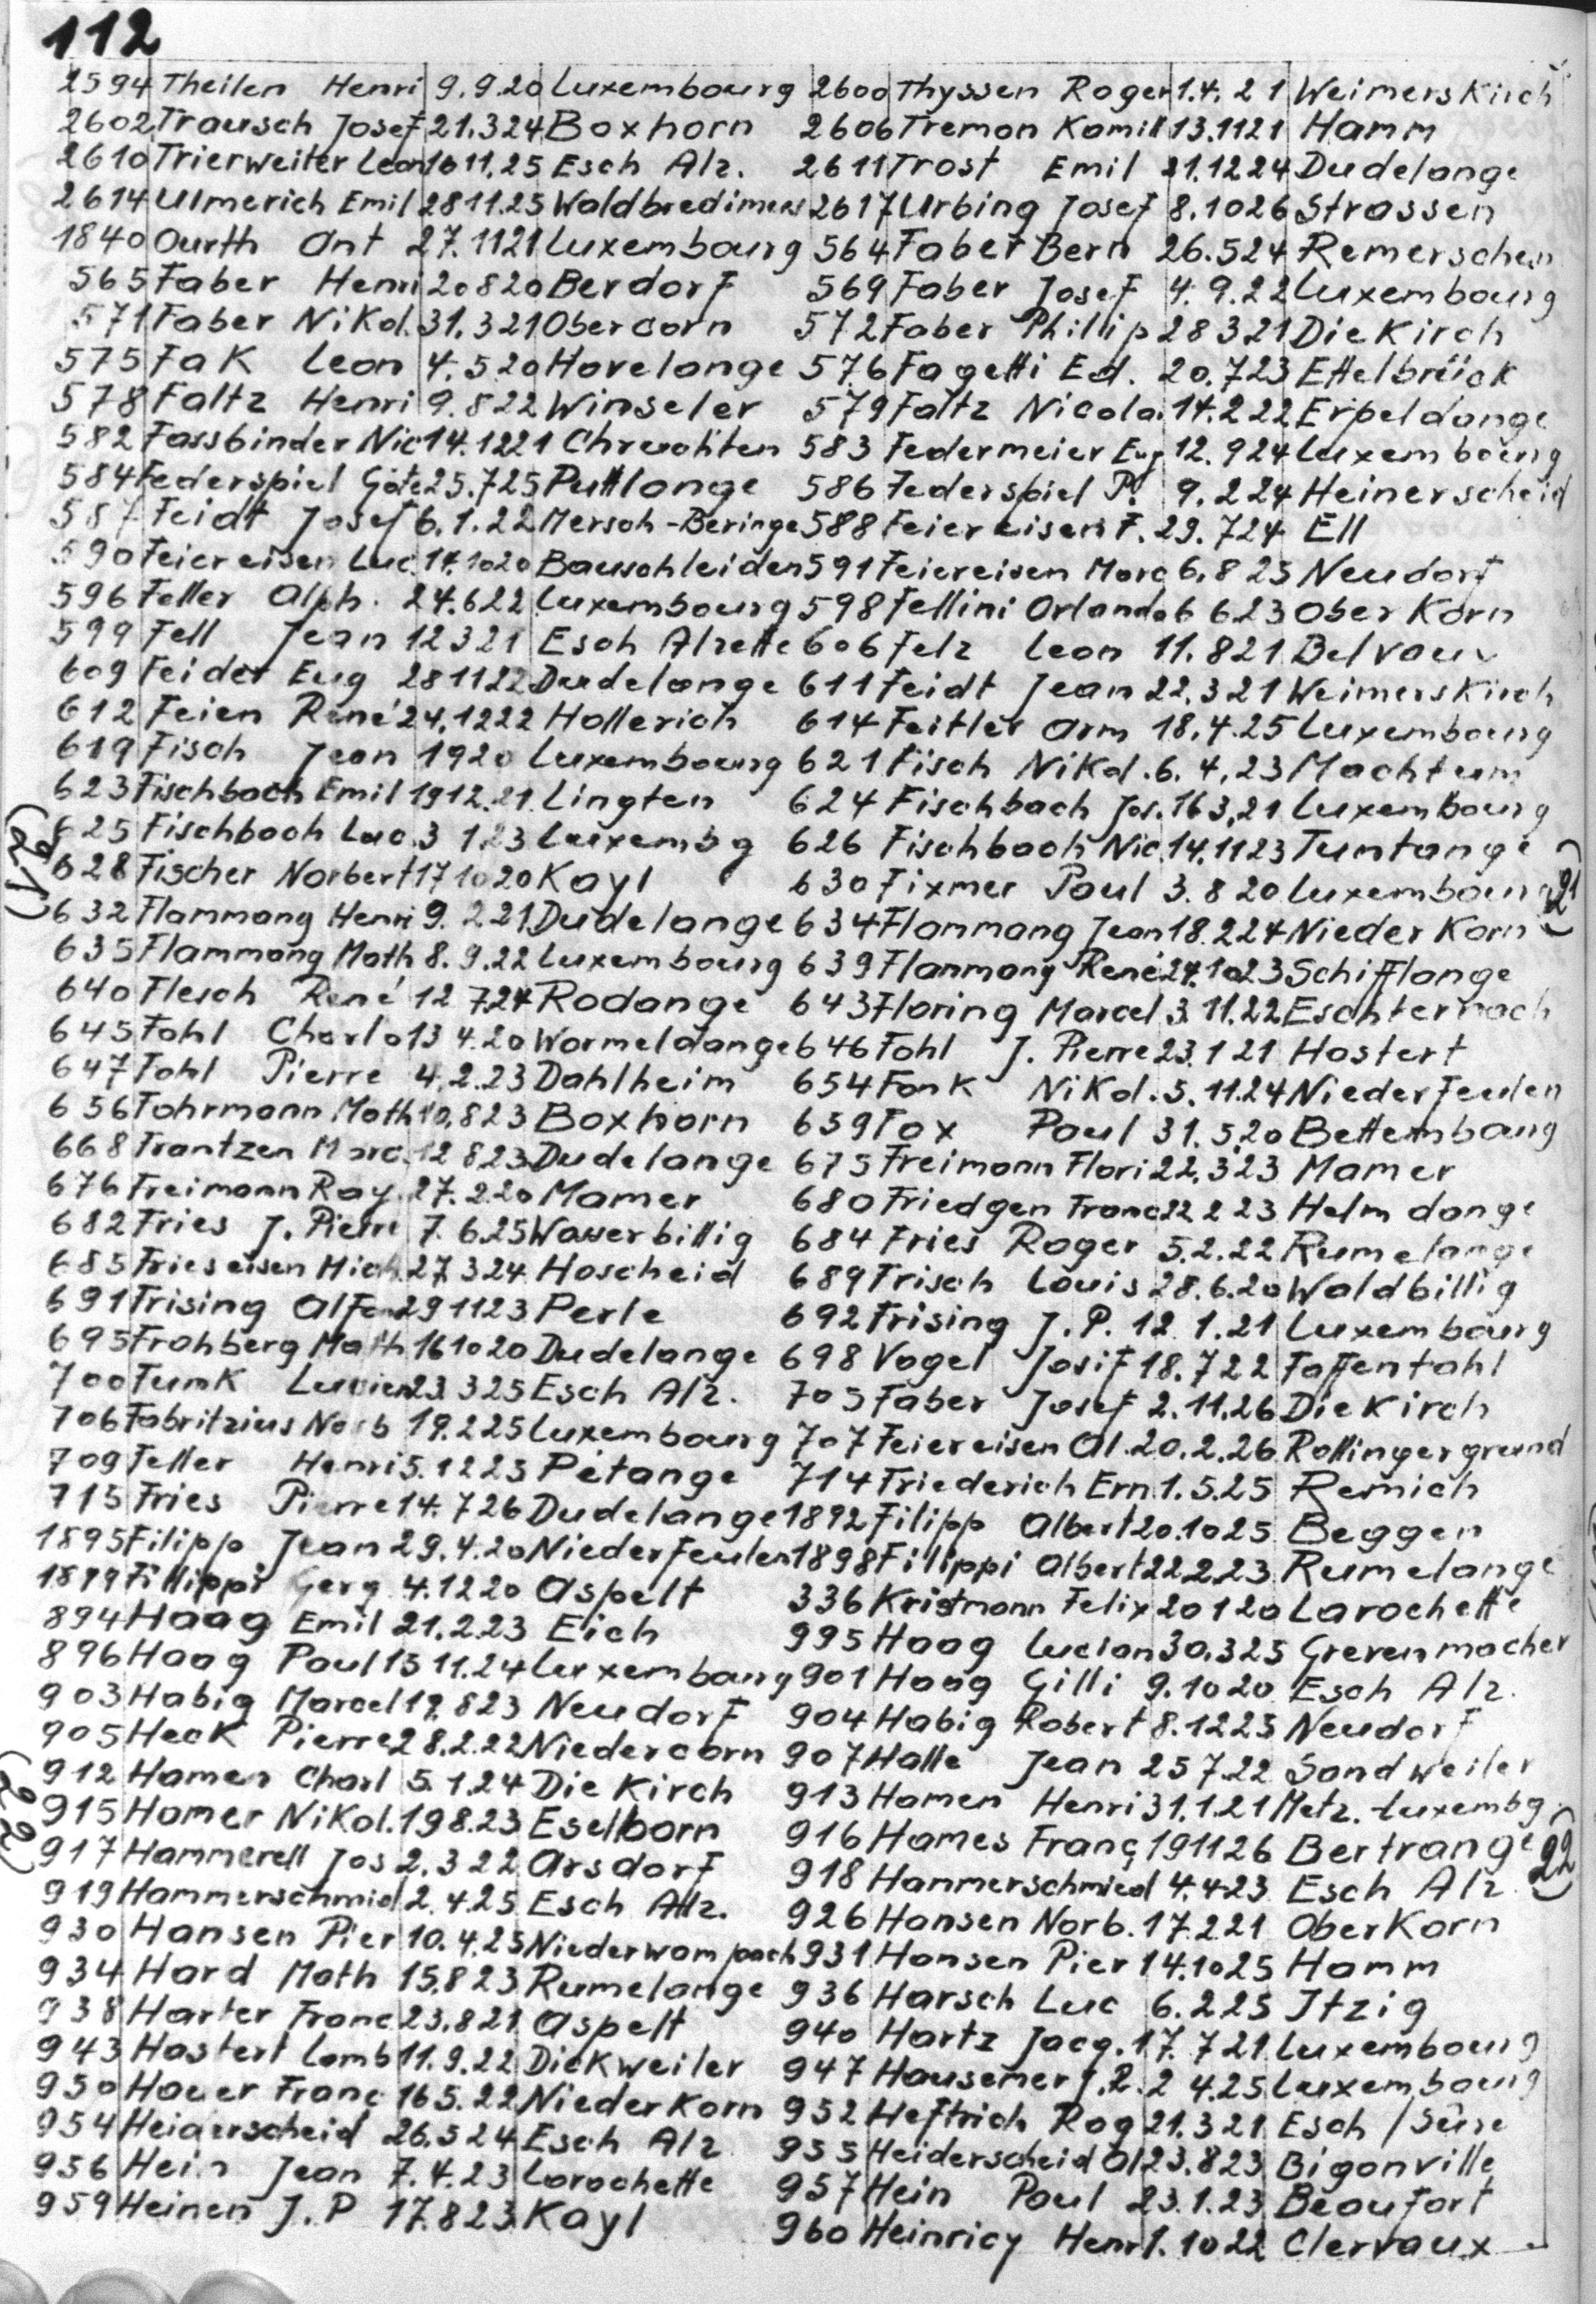 112
2594 Theilen Henri 9.9.20 Luxembourg 2600 Thyssen Roger 1.4.21 Weimerskirch
2602 Trausch Josef 21.324 Boxhorn 2606 Tremon Kamill 13.1121 Hamm
2610 Trierweiler Leon 1011.25 Esch Alz. 2611 Trost Emil 21.1224 Dudelange
2614 Ulmerich Emil 2811.25 Waldbredimes 2617 Urbing Josef 8.1026 Strassen
1840 Ourth Ant 27.1121 Luxembourg 564 Faber Bern 26.524 Remerschen
565 Faber Henri 20820 Berdorf 569 Faber Josef 4.9.22 Luxembourg
571 Faber Nikol. 31.321 Obercorn 572 Faber Phillip 28321 Diekirch
575 Fak Leon 4.520 Hovelange 576 Fagetti Ed. 20.723 Ettelbrück
578 Faltz Henri 9.822 Winseler 579 Faltz Nicola. 14.222 Erpeldange
582 Fassbinder Nic 14.1221 583 Federmeier Eug 12.924 Luxembourg
584 Federspiel 25.725 Puttlange 586 Federspiel P. 9.224 Heinerscheid
587 Feidt Josef 6.1.22 Mersch-Beringe 588 Feiereisen F. 29.724 Ell
590 Feiereisen Luc. 14.1020 Bauschleiden 591 Feiereisen Marc 6.825 Neudorf
596 Feller Alph. 24.622 Luxembourg 598 Fellini Orlando 6 623 Oberkorn
599 Fell Jean 12321 Esch Alzette 606 Felz Leon 11.821 Belvaux
609 Feider Eug 281122 Dudelange 611 Feidt Jean 22.321 Weimerskirch
612 Feien René 24.1222 Hollerich 614 Feitler Arm 18.4.25 Luxembourg
619 Fisch Jean 1920 Luxembourg 621 Fisch Nikol. 6.4.23 Machtum
623 Fischbach Emil 1912.21. Lingten 624 Fischbach Jos. 163.21 Luxembourg
625 Fischbach Luc. 3 1.23 Luxembg 626 Fischbach Nic. 14.1123 Tuntange
(21)
628 Fischer Norbert 171020 Kayl 630 Fixmer Paul 3.820 Luxembourg
(21)
632 Flammang Henri 9.221 Dudelange 634 Flammang Jean 18.224 Niederkorn
635 Flammang Math 8.9.22 Luxembourg 639 Flanmang René 24.1023 Schifflange
640 Flesch René 12 724 Rodange 643 Floring Marcel 3.11.22 Eschternach
645 Fohl Charlo 13 4.20 Wormeldange 646 Fohl J. Pierre 23.121 Hostert
647 Fohl Pierre 4.2.23 Dahlheim 654 Fonk Nikol. 5.11.24 Niederfeulen
656 Fohrmann Math 10.823 Boxhorn 659 Fox Paul 31.520 Bettembourg
668 Frantzen Marc. 12 823 Dudelange 675 Freimann Flori 22.323 Mamer
676 Freimann Ray. 27.220 Mamer 680 Friedgen Franc 22 2 23 Helmdange
682 Fries J. Pierre 7.6.25 Wasserbillig 684 Fries Roger 5.2.22 Rumelange
685 Frieseisen Mich. 27 324 Hoscheid 689 Frisch Louis 28.6.20 Waldbillig
691 Frising Alfon 291123 Perle 692 Frising J.P. 12 1.21 Luxembourg
695 Frohberg Math 161020 Dudelange 698 Vogel Josif 18.722 Faffentahl
700 Funk Lucien 23.325 Esch Alz. 705 Faber Josef 2.11.26 Diekirch
706 Fabritzius Norb 19.225 Luxembourg 707 Feiereisen Al. 20.2.26 Rollingergrund
709 Feller Henri 5.1225 Pétange 714 Friederich Ern. 1.5.25 Remich
715 Fries Pierre 14.726 Dudelange 1892 Filipp Albert 20.1025 Beggen
1895 Filipp Jean 29.4.20 Niederfeulen 1898 Fillippi Albert 22.2.23 Rumelange
1899 Fillippi Gerg. 4.1220 Aspelt 336 Kristmann Felix 20120 Larochette
894 Haag Emil 21.2.23 Eich 995 Haag Lucian 30.325 Grevenmacher
896 Haag Paul 1511.24 Luxembourg 901 Haag Gilli 9.1020 Esch Alz.
903 Habig Marcel 19.823 Neudorf 904 Habig Robert 8.1223 Neudorf
905 Heck Pierre 28.2.22 Niedercorn 907 Halle Jean 25722 Sandweiler
(22)
912 Hamen Charl 5.1.24 Diekirch 913 Hamen Henri 31.1.21 Metz.-Luxembg.
915 Hamer Nikol. 198.23 Eselborn 916 Hames Franç 191126 Bertrange
(22)
917 Hammerell Jos 2.322 Arsdorf 918 Hanmerschmied 4.423 Esch Alz.
919 Hammerschmid 2.4.25 Esch Alz. 926 Hansen Norb. 17.221 Oberkorn
930 Hansen Pier 10.4.25 Niederwampach 931 Hansen Pier 14.1025 Hamm
934 Hard Math 15.823 Rumelange 936 Harsch Luc 6.225 Itzig
938 Harter Franc 23.821 Aspelt 940 Hartz Jacq. 17.721 Luxembourg
943 Hastert Lamb 11.9.22 Dickweiler 947 Hausemer J.P. 2 4.25 Luxembourg
950 Hauer Franc 165.22 Niederkorn 952 Heftrich Rog 21.321 Esch / Sûre
954 Heiderscheid 26.524 Esch Alz 955 Heiderscheid Al 23.823 Bigonville
956 Hein Jean 7.4.23 Larochette 957 Hein Paul 23.1.23 Beaufort
959 Heinen J.P 17.823 Kayl 960 Heinricy Henr 1.1022 Clervaux